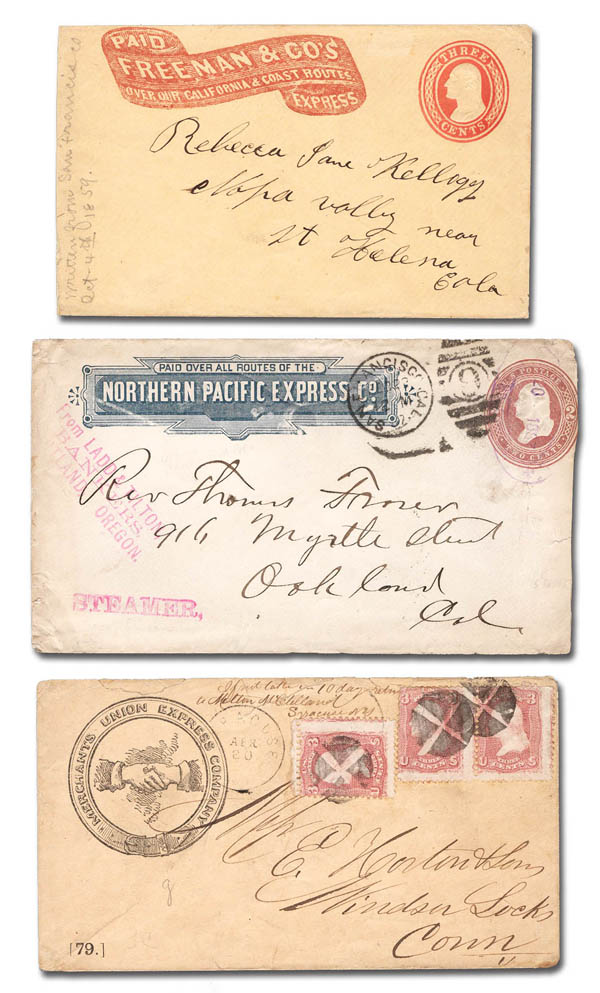 PAID
FREEMAN & CO'S
OVER OUR CALIFORNIA & COAST ROUTES
EXPRESS
THREE
CENTS
Written from San Francisco
Oct 4th 1859.
Rebecca Jane Kellogg
Napa valley near
St Helena
Cala
PAID OVER ALL ROUTES OF THE
NORTHERN PACIFIC EXPRESS CO.
SAN FRANCISCO, CAL.
POSTAGE
TWO CENTS
From LADD & TILTON
BANKERS,
OREGON.
STEAMER,
Rev Thomas Fraser
916 Myrtle Street
Oakland
Cal.
MERCHANTS UNION EXPRESS COMPANY
If not taken in 10 days return
Syracuse NY
APR
20
3 3
U S
3 3
THREE
CENTS
U S
3 3
THREE
CENTS
U S
E. Horton & Son
Windsor Locks
Conn
[79.]